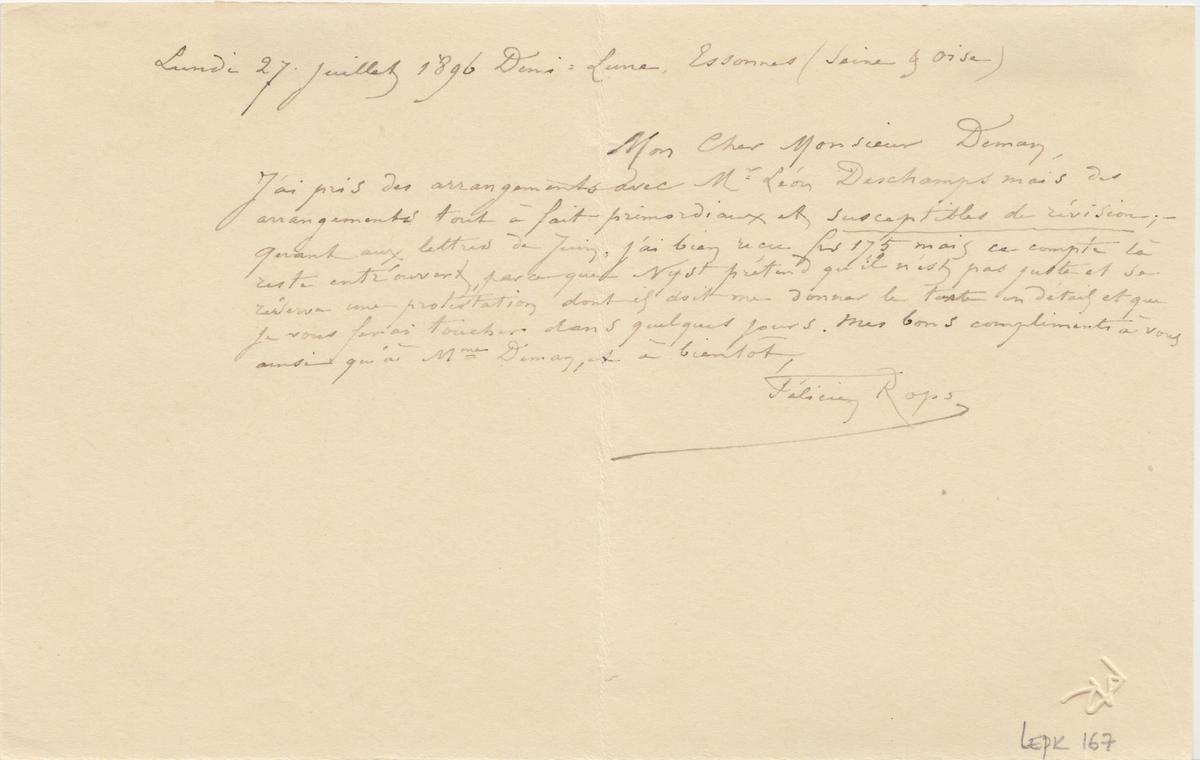 Lundi 27. juillet 1896 Demi=Lune. Essonnes (Seine & Oise)
Mon Cher Monsieur Deman,
J'ai pris des arrangements avec Mr Léon Deschamps mais des
arrangements tout à fait primordiaux et susceptibles de révision; -
quant aux lettres de Juin, j'ai bien reçu frs 175 mais ce compte là
reste entr'ouvert, parce que Nyst prétend qu'il n'est pas juste et se
réserve une protestation dont il doit me donner le texte en détail et que
je vous ferai toucher dans quelques jours. Mes bons compliments à vous
ainsi qu'à Mme Deman, et à bientôt,
Félicien Rops
LEpK 167